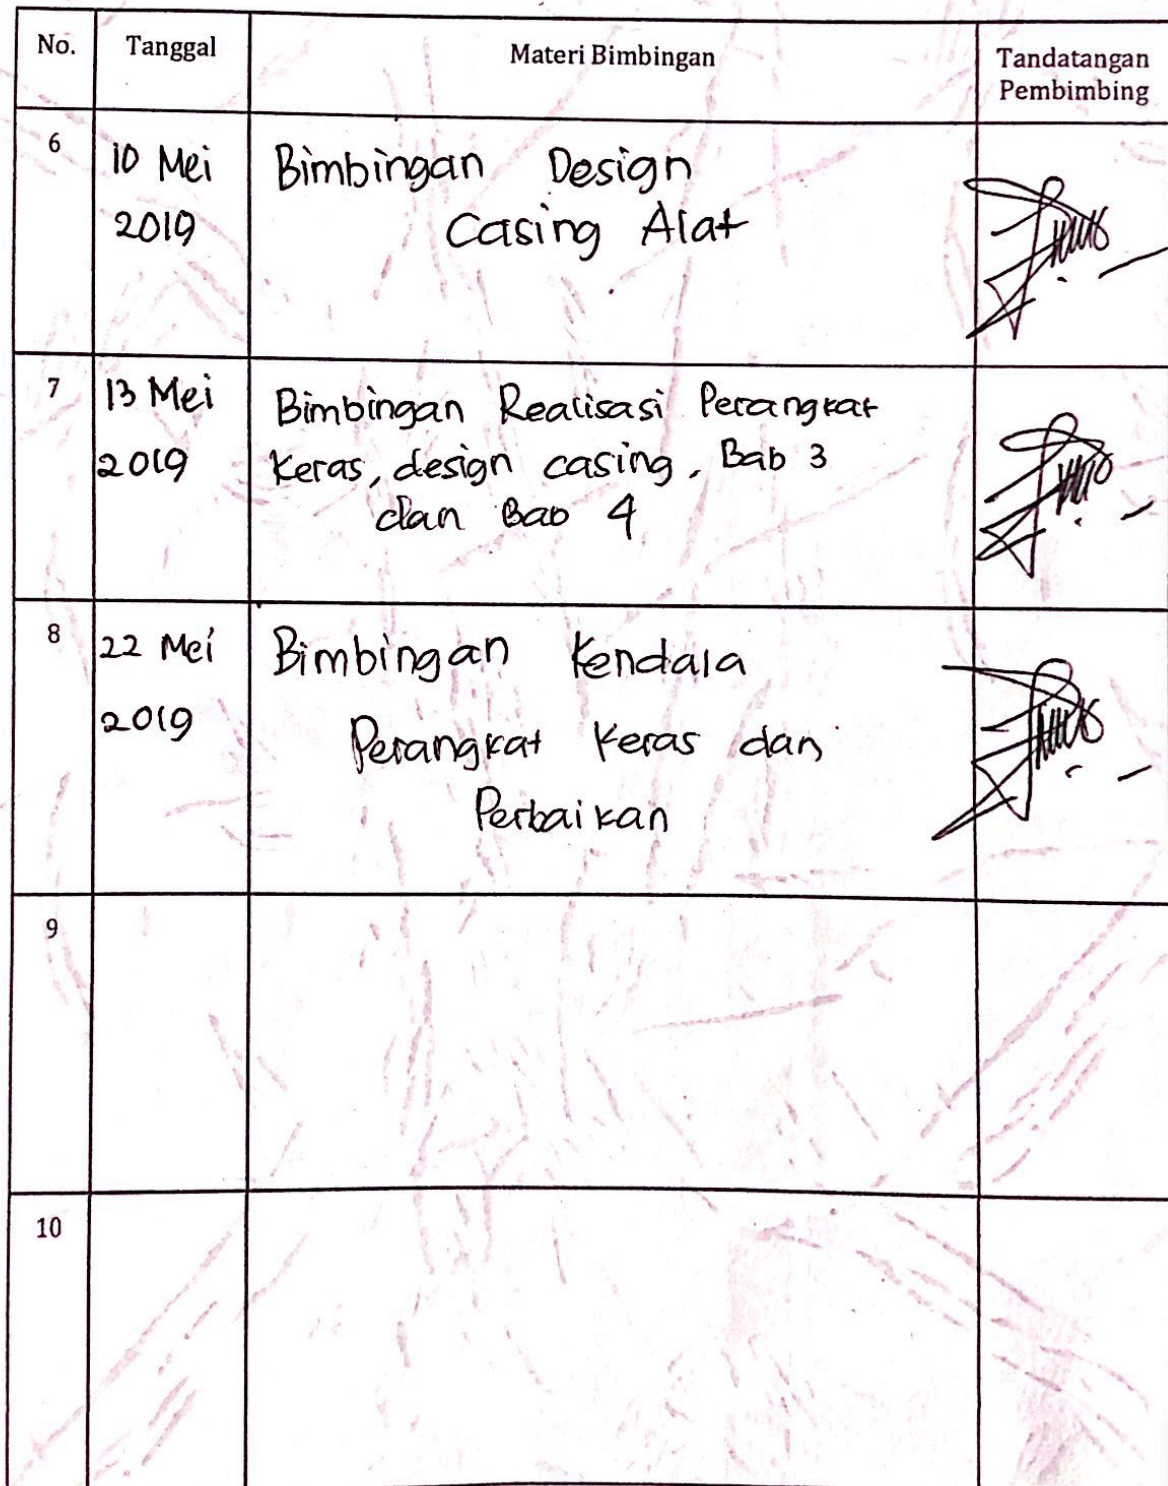 No. Tanggal Materi Bimbingan Tandatangan
Pembimbing
6 10 Mei Bimbingan Design
2019 Casing Alat
7 13 Mei Bimbingan Realisasi Perangkat
2019 Keras, design casing, Bab 3
dan Bab 4
8 22 Mei Bimbingan Kendala
2019 Perangkat Keras dan
Perbaikan
9
10